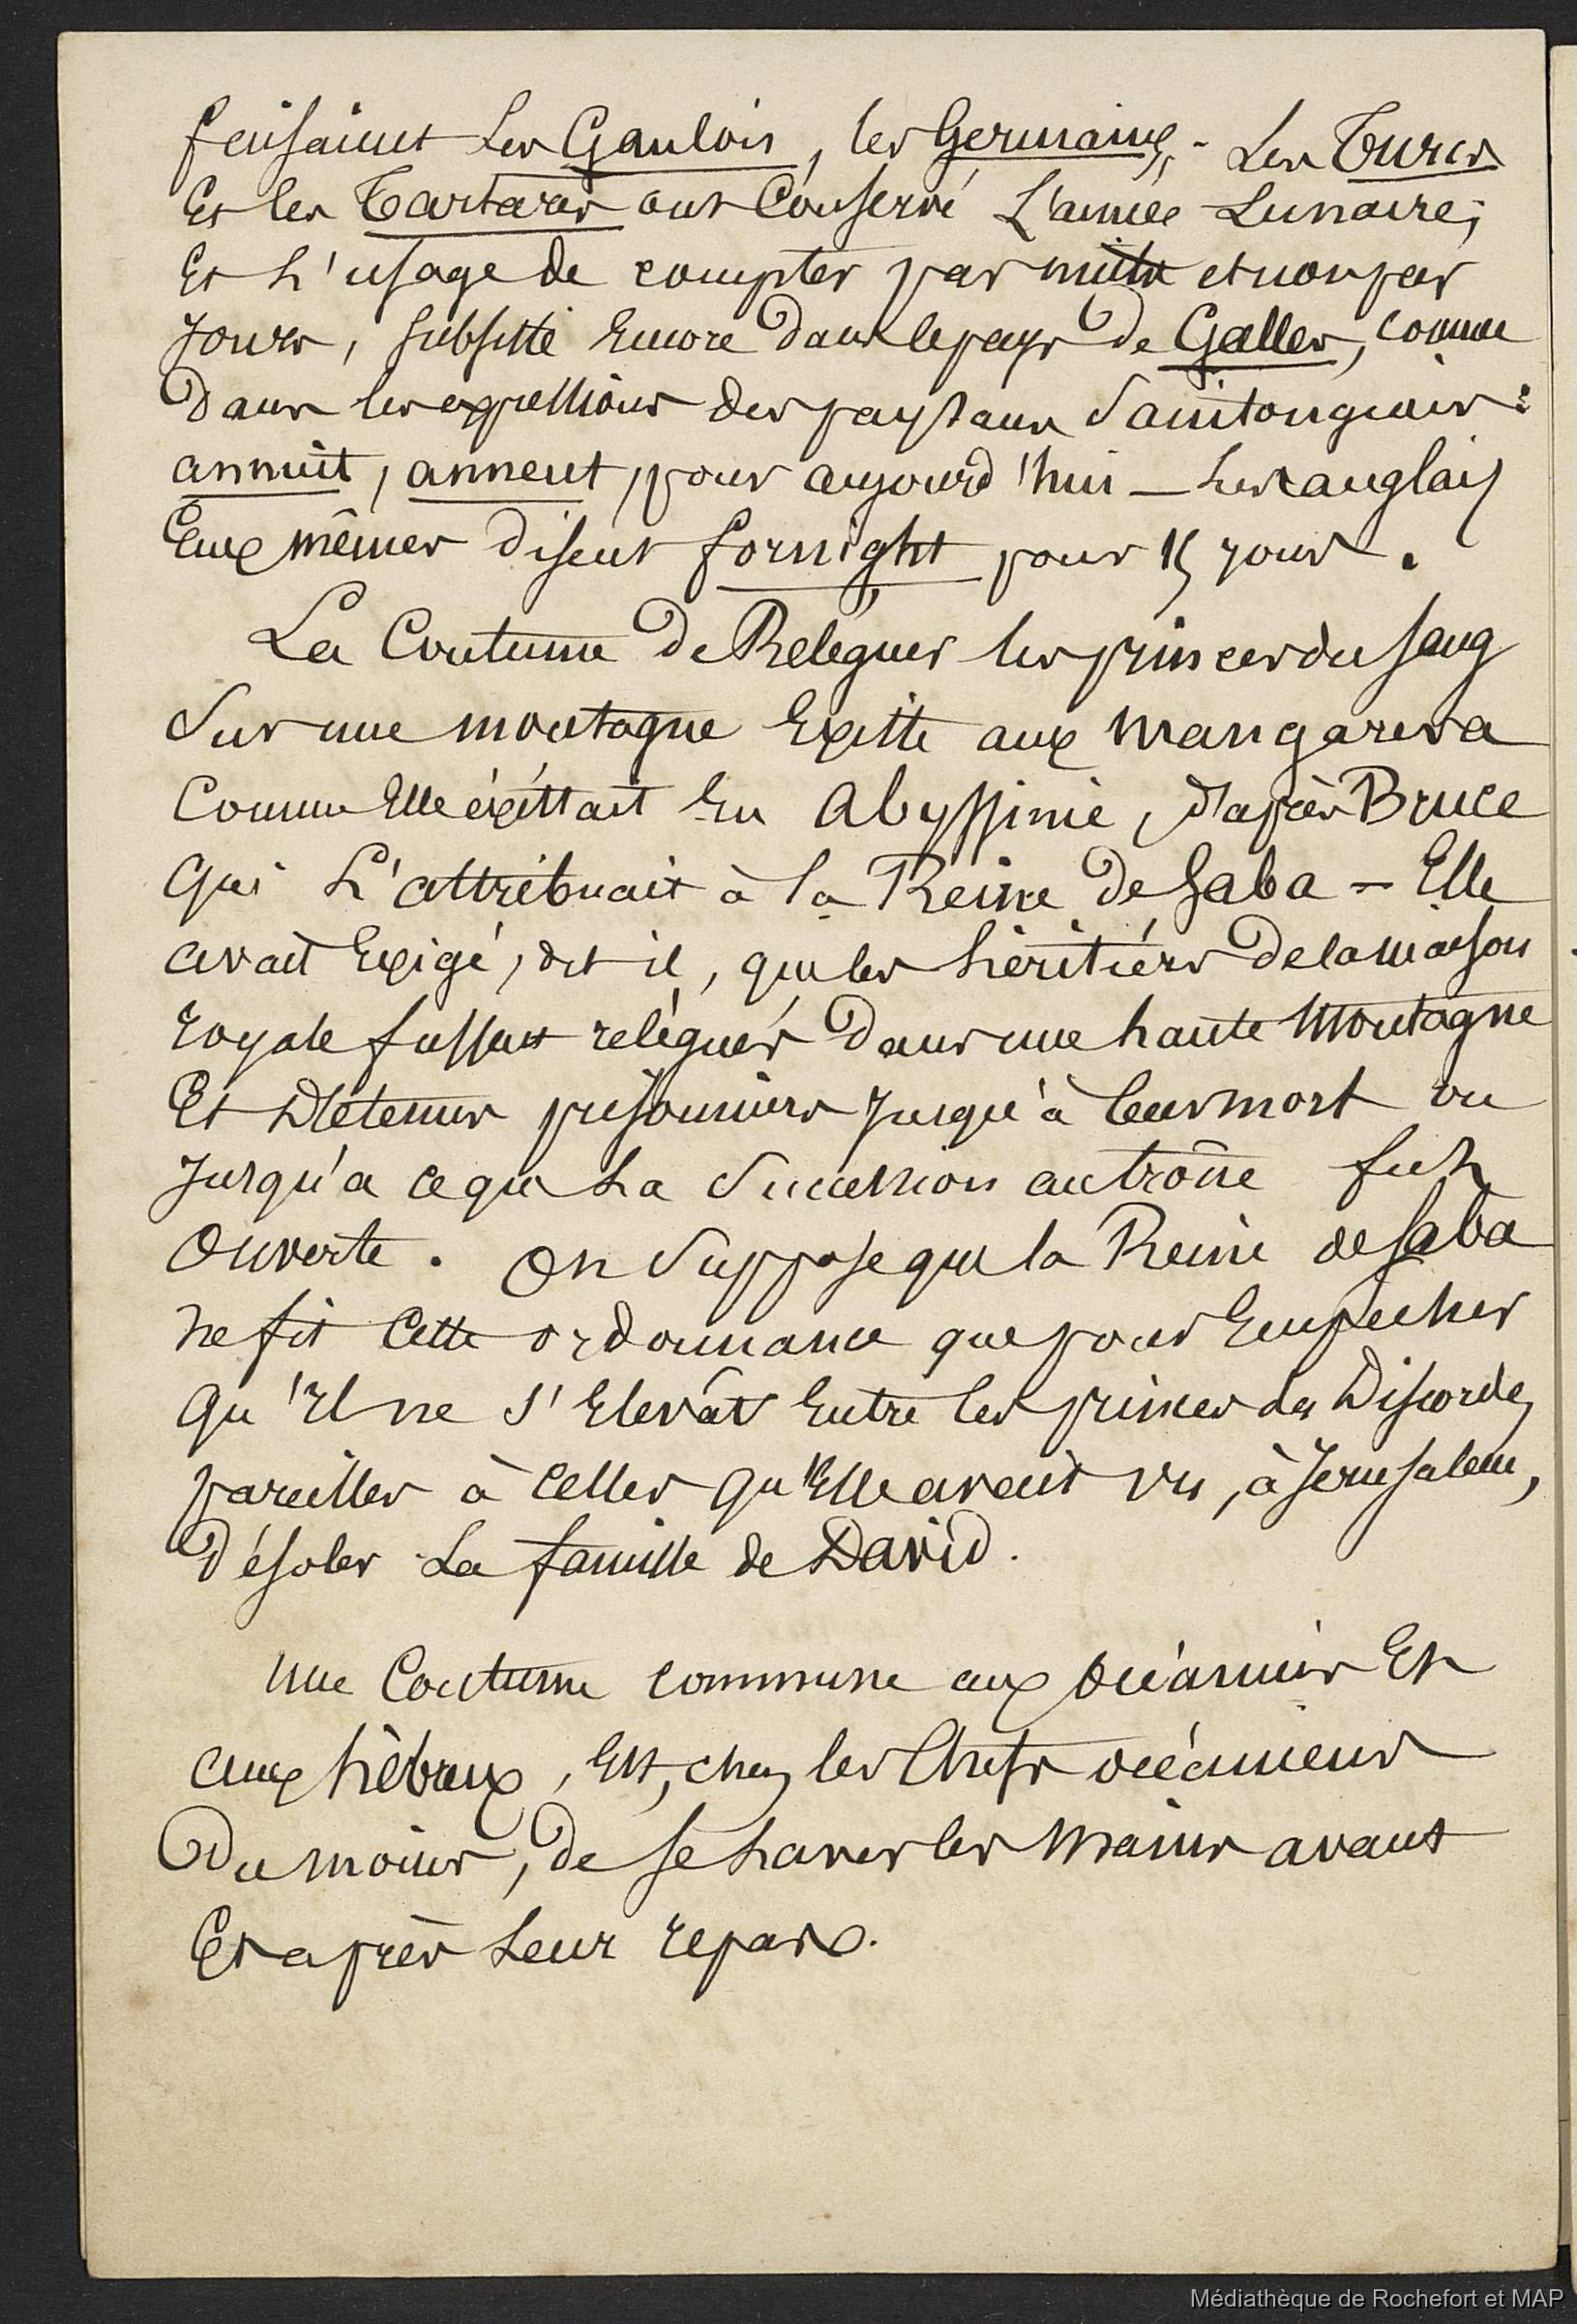 faisaient Les Gaulois, les Germains, - Les Turcs
Et les Tartares ont Conservé L'année Lunaire;
Et L'usage de compter par nuits et non par
Jours, subsiste Encore dans le pays de Galles, comme
Dans les expressions des paysans Saintongeais:
annuit, anneut, pour aujourd'hui — Les anglais
Eux mêmes disent fornight pour 15 jours.
La Coutume De Reléguer les princes du sang
Sur une montagne Existe aux mangareva
Comme Elle éxistait En Abyssinie, d'après Bruce
Qui L'attribuait à la Reine De Saba - Elle
avait Exigé, dit il, que les héritiérs De la maison
royale fussent relégués Dans une haute Montagne
Et Détenus prisonniers Jusqu'à leur mort ou
Jusqu'a ce que La Succession au trône fut
Ouverte. On Suppose que la Reine de Saba
ne fit Cette ordonnance que pour Empecher
Qu'Il ne s'Elevât Entre les princes des Discordes
pareilles à Celles Qu'Elle avait vu, à Jerusalem,
Désoler La famille de David.
Une Coutume commune aux Océaniens Et
aux hébreux, Est, chez les Chefs océaniens
Du moins, De se Laver les Mains avant
Et après Leur repas.
Médiathèque de Rochefort et MAP